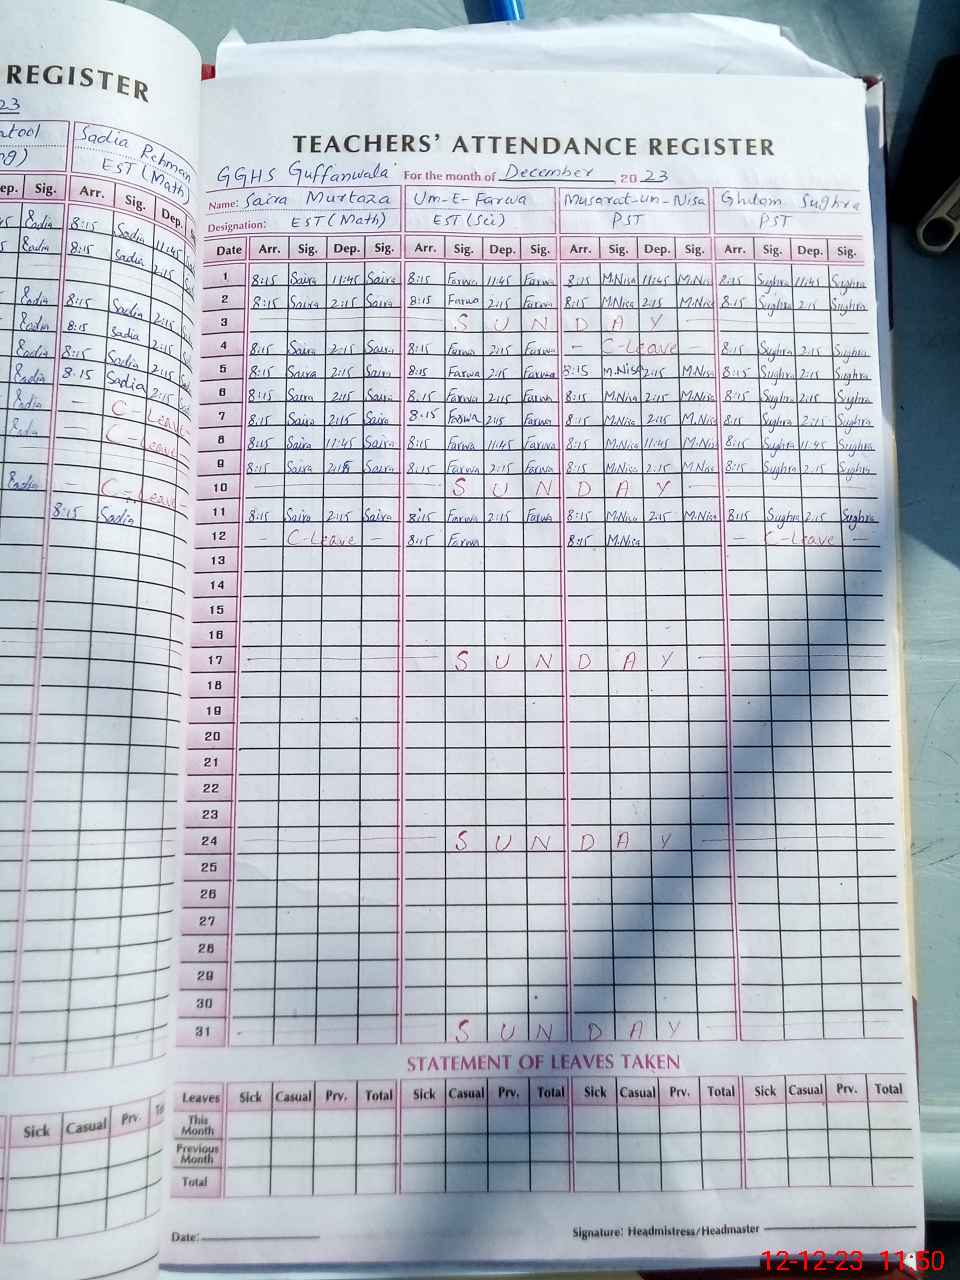 REGISTER
23
Sadia Rehman
EST (Math)
ep. Sig. Arr. Sig. Dep.
Eadia 8:15 Sadia 11:45
Eadia 8:15 Sadia 2:15
Eadia 8:15 Sadia 2:15
Eadia 8:15 Sadia 2:15
Eadia 8:15 Sadia 2:15
Eadia 8:15 Sadia 2:15
Eadia - C-Leave
Eadia - C-Leave
Eadia - C-Leave -
8:15 Sadia
Sick Casual Prv.
TEACHERS' ATTENDANCE REGISTER
GGHS Guffanwala For the month of December 2023
Name: Saira Murtaza Um-E-Farwa Musarat-un-Nisa Ghulam Sughra
Designation: EST (Math) EST (Sci) PST PST
Date Arr. Sig. Dep. Sig. Arr. Sig. Dep. Sig. Arr. Sig. Dep. Sig. Arr. Sig. Dep. Sig.
1 8:15 Saira 11:45 Saira 8:15 Farwa 11:45 Farwa 8:15 M.Nisa 11:45 M.Nisa 8:15 Sughra 11:45 Sughra
2 8:15 Saira 2:15 Saira 8:15 Farwa 2:15 Farwa 8:15 M.Nisa 2:15 M.Nisa 8:15 Sughra 2:15 Sughra
3 SUNDAY
4 8:15 Saira 2:15 Saira 8:15 Farwa 2:15 Farwa - C-Leave - 8:15 Sughra 2:15 Sughra
5 8:15 Saira 2:15 Saira 8:15 Farwa 2:15 Farwa 8:15 M.Nisa 2:15 M.Nisa 8:15 Sughra 2:15 Sughra
6 8:15 Saira 2:15 Saira 8:15 Farwa 2:15 Farwa 8:15 M.Nisa 2:15 M.Nisa 8:15 Sughra 2:15 Sughra
7 8:15 Saira 2:15 Saira 8:15 Farwa 2:15 Farwa 8:15 M.Nisa 2:15 M.Nisa 8:15 Sughra 2:15 Sughra
8 8:15 Saira 11:45 Saira 8:15 Farwa 11:45 Farwa 8:15 M.Nisa 11:45 M.Nisa 8:15 Sughra 11:45 Sughra
9 8:15 Saira 2:15 Saira 8:15 Farwa 2:15 Farwa 8:15 M.Nisa 2:15 M.Nisa 8:15 Sughra 2:15 Sughra
10 SUNDAY
11 8:15 Saira 2:15 Saira 8:15 Farwa 2:15 Farwa 8:15 M.Nisa 2:15 M.Nisa 8:15 Sughra 2:15 Sughra
12 - C-Leave - 8:15 Farwa 8:15 M.Nisa - C-Leave -
13
14
15
16
17 SUNDAY
18
19
20
21
22
23
24 SUNDAY
25
26
27
28
29
30
31 SUNDAY
STATEMENT OF LEAVES TAKEN
Leaves Sick Casual Prv. Total Sick Casual Prv. Total Sick Casual Prv. Total Sick Casual Prv. Total
This
Month
Previous
Month
Total
Date: Signature: Headmistress/Headmaster
12-12-23 11:50